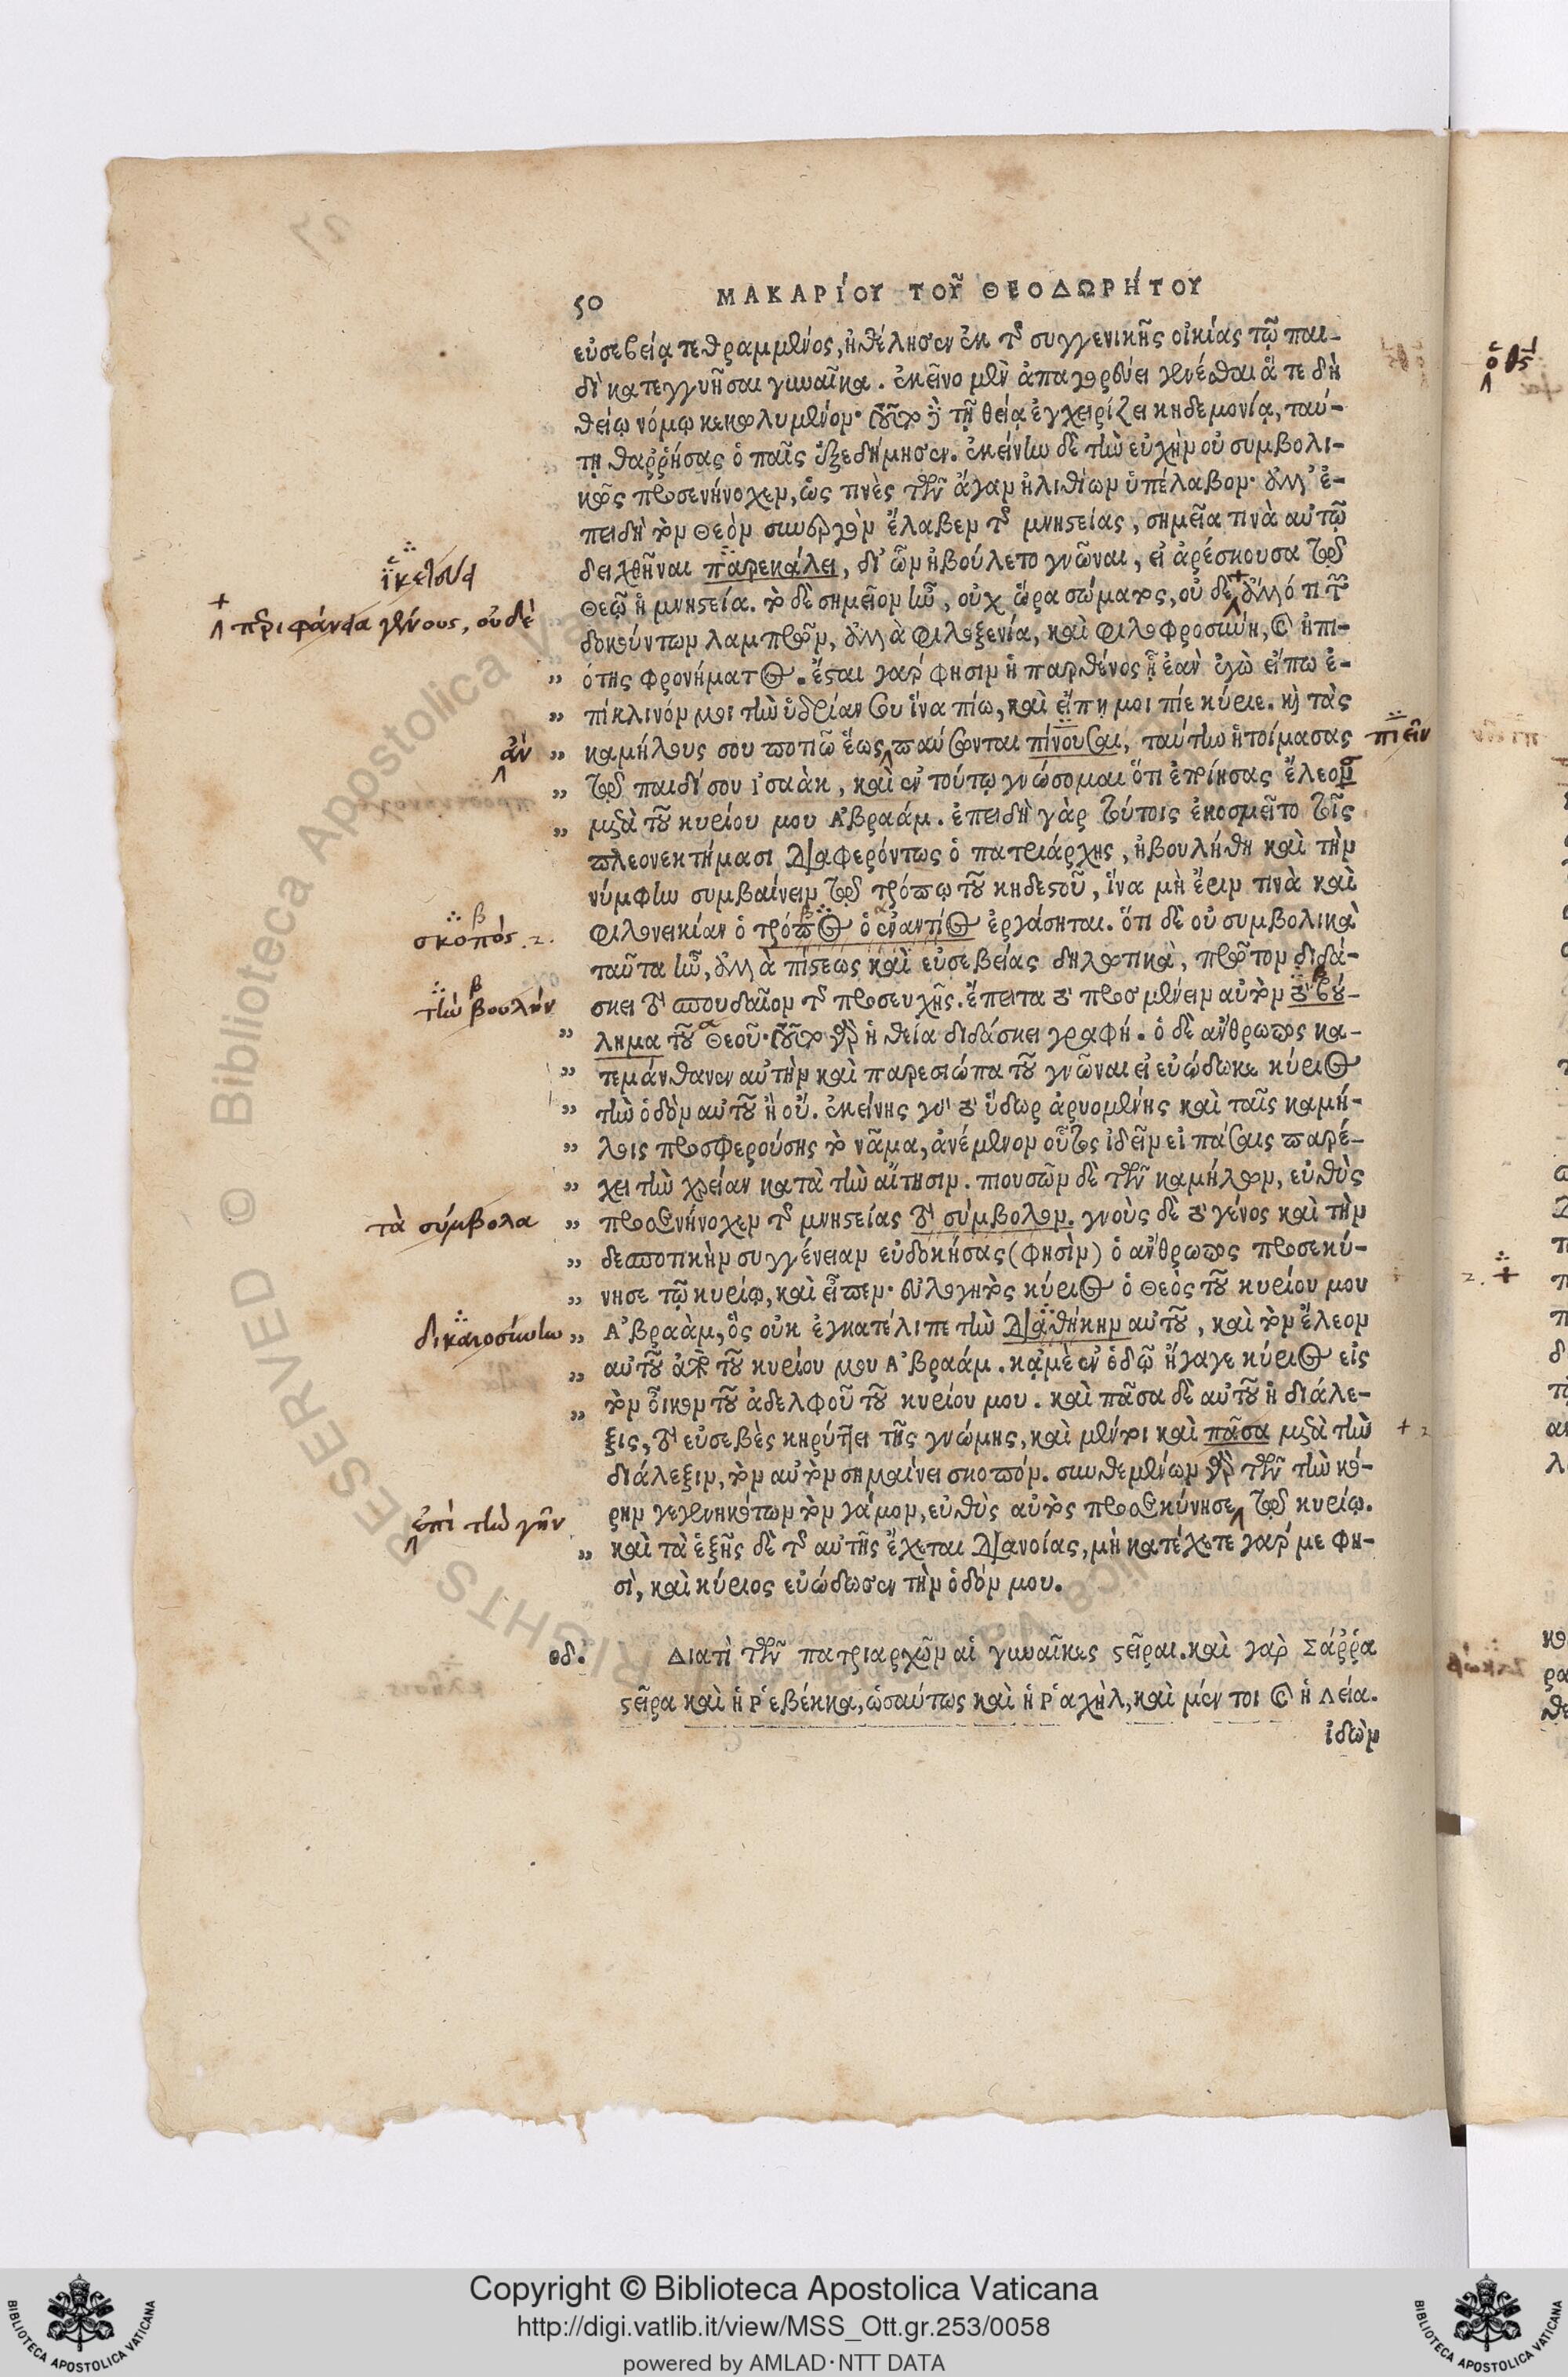 50 ΜΑΚΑΡΊΟΥ ΤΟΥ͂ ΘΕΟΔΩΡΉΤΟΥ
εὐσεβείᾳ τεθραμμένος, ἠθέλησεν ἐκ τῆς συγγενικῆς οἰκίας τῷ παι-
δὶ κατεγγυῆσαι γυναῖκα. ἐκεῖνο μὲν ἀπαγορεύει γενέσθαι ἅ τε δὴ
θείῳ νόμῳ κεκωλυμένον· τοῦτο δὲ τῇ θείᾳ ἐγχειρίζει κηδεμονίᾳ, ταύ-
τῃ θαῤῥήσας ὁ παῖς ἐξεδήμησεν. ἐκείνην δὲ τὴν εὐχὴν οὐ συμβολι-
κῶς προσενήνοχεν, ὥς τινὲς τῶν ἄγαν ἠλιθίων ὑπέλαβον· ἀλλ' ἐ-
πειδὴ τὸν Θεὸν συνεργὸν ἔλαβεν τῆς μνηστείας, σημεῖα τινὰ αὐτῷ
ἱκετεύει
δειχθῆναι παρεκάλει, δι' ὧν ἠβούλετο γνῶναι, εἰ ἀρέσκουσα τῷ
+ περιφάνεια γένους, οὐδὲ
Θεῷ ἡ μνηστεία. τὸ δὲ σημεῖον ἦν, οὐχ ὥρα σώματος, οὐ δὲ + ἄλλό τι τῶν
δοκούντων λαμπρῶν, ἀλλὰ φιλοξενία, καὶ φιλοφροσύνη, καὶ ἠπι-
„ ότης φρονήματος. ἔσται γάρ φησιν ἡ παρθένος ᾗ ἐὰν ἐγὼ εἴπω ἐ-
„ πίκλινόν μοι τὴν ὑδρίαν σου ἵνα πίω, καὶ εἴπῃ μοι πίε κύριε. καὶ τὰς
ἂν „ καμήλους σου ποτιῶ ἕως παύσωνται πίνουσαι, ταύτην ἡτοίμασας πιεῖν
„ τῷ παιδί σου Ἰσαὰκ, καὶ ἐν τούτῳ γνώσομαι ὅτι ἐποίησας ἔλεον
„ μετὰ τοῦ κυρίου μου Ἀβραάμ. ἐπειδὴ γὰρ τούτοις ἐκοσμεῖτο τοῖς
πλεονεκτήμασι διαφερόντως ὁ πατριάρχης, ἠβουλήθη καὶ τὴν
νύμφην συμβαίνειν τῷ τρόπῳ τοῦ κηδεστοῦ, ἵνα μὴ ἔριν τινὰ καὶ
σκοπός. 2.
φιλονεικίαν ὁ τρόπος ὁ ἐναντίος ἐργάσηται. ὅτι δὲ οὐ συμβολικὰ
ταῦτα ἦν, ἀλλὰ πίστεως καὶ εὐσεβείας δηλωτικὰ, πρῶτον διδά-
τὴν βουλήν
σκει τὸ σπουδαῖον τῆς προσευχῆς. ἔπειτα τὸ προσμένειν αὐτὸν τὸ βού-
„ λημα τοῦ Θεοῦ· τοῦτο γὰρ ἡ θεία διδάσκει γραφή. ὁ δὲ ἄνθρωπος κα-
„ τεμάνθανεν αὐτὴν καὶ παρεσιώπα τοῦ γνῶναι εἰ εὐώδωκε κύριος
„ τὴν ὁδὸν αὐτοῦ ἢ οὔ. ἐκείνης γὰρ τὸ ὕδωρ ἀρυομένης καὶ ταῖς καμή-
„ λοις προσφερούσης τὸ νᾶμα, ἀνέμενον οὗτος ἰδεῖν εἰ πάσαις παρέ-
„ χει τὴν χρείαν κατὰ τὴν αἴτησιν. πιουσῶν δὲ τῶν καμήλων, εὐθὺς
τὰ σύμβολα „ προσενήνοχεν τῆς μνηστείας τὸ σύμβολον. γνοὺς δὲ τὸ γένος καὶ τὴν
„ δεσποτικὴν συγγένειαν εὐδοκήσας (φησὶν) ὁ ἄνθρωπος προσεκύ-
„ νησε τῷ κυρίῳ, καὶ εἶπεν· εὐλογητὸς κύριος ὁ Θεὸς τοῦ κυρίου μου
δικαιοσύνην „ Ἀβραὰμ, ὃς οὐκ ἐγκατέλιπε τὴν διαθήκην αὐτοῦ, καὶ τὸν ἔλεον
„ αὐτοῦ ἀπὸ τοῦ κυρίου μου Ἀβραάμ. κᾀμὲ ἐν ὁδῷ ἤγαγε κύριος εἰς
„ τὸν οἶκον τοῦ ἀδελφοῦ τοῦ κυρίου μου. καὶ πᾶσα δὲ αὐτοῦ ἡ διάλε-
ξις, τὸ εὐσεβὲς κηρύττει τῆς γνώμης, καὶ μέντοι καὶ πᾶσα μετὰ τὴν + 2
διάλεξιν, τὸν αὐτὸν σημαίνει σκοπόν. συνθεμένων γὰρ τῶν τὴν κό-
ρην γεγεννηκότων τὸν γάμον, εὐθὺς αὐτὸς προσεκύνησε τῷ κυρίῳ.
ἐπὶ τὴν γῆν
„ καὶ τὰ ἑξῆς δὲ τῆς αὐτῆς ἔχεται διανοίας, μὴ κατέχετε γάρ με φη-
σὶ, καὶ κύριος εὐώδωσεν τὴν ὁδόν μου.
οδ. Διατὶ τῶν πατριαρχῶν αἱ γυναῖκες στεῖραι. καὶ γὰρ Σάῤῥα
στεῖρα καὶ ἡ Ῥεβέκκα, ὡσαύτως καὶ ἡ Ῥαχὴλ, καὶ μέν τοι καὶ ἡ Λεία.
ἰδὼν
Biblioteca Apostolica Vaticana
© RIGHTS RESERVED
Copyright © Biblioteca Apostolica Vaticana
http://digi.vatlib.it/view/MSS_Ott.gr.253/0058
powered by AMLAD·NTT DATA
BIBLIOTECA APOSTOLICA VATICANA
BIBLIOTECA APOSTOLICA VATICANA